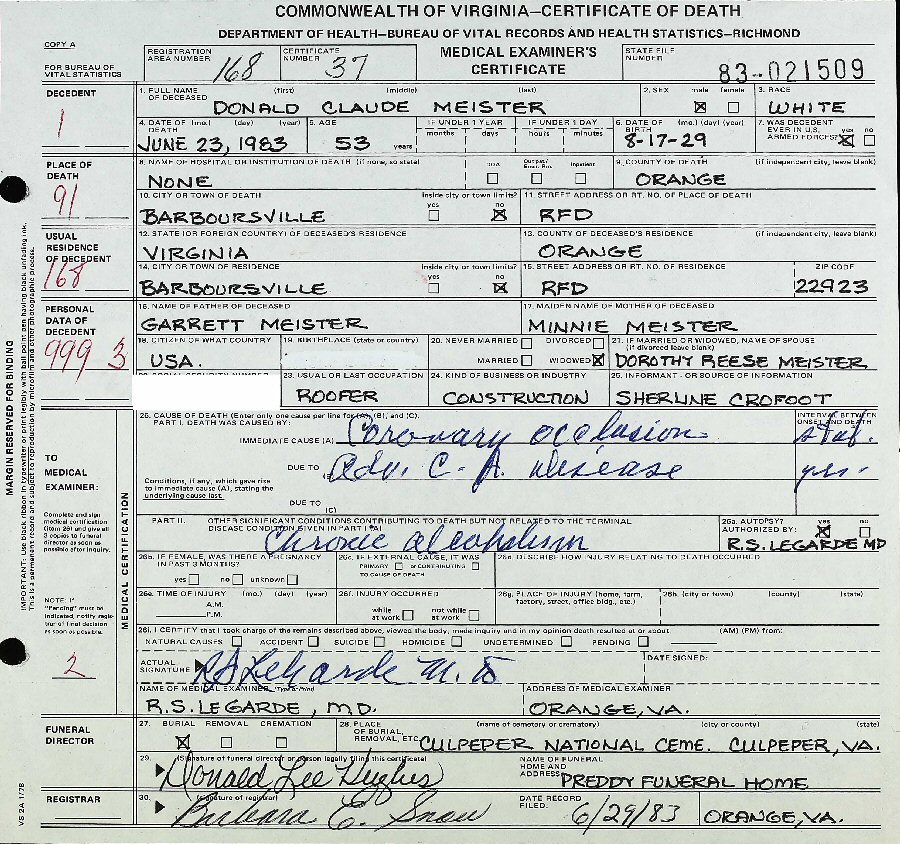 COMMONWEALTH OF VIRGINIA—CERTIFICATE OF DEATH
DEPARTMENT OF HEALTH—BUREAU OF VITAL RECORDS AND HEALTH STATISTICS—RICHMOND
COPY A
FOR BUREAU OF VITAL STATISTICS
REGISTRATION AREA NUMBER 168
CERTIFICATE NUMBER 37
MEDICAL EXAMINER'S CERTIFICATE
STATE FILE NUMBER 83-021509
DECEDENT
1
1. FULL NAME OF DECEASED (first) (middle) (last)
DONALD CLAUDE MEISTER
2. SEX male female
3. RACE
WHITE
4. DATE OF DEATH (mo.) (day) (year)
JUNE 23, 1983
5. AGE
53 years
IF UNDER 1 YEAR months days
IF UNDER 1 DAY hours minutes
6. DATE OF BIRTH (mo.) (day) (year)
8-17-29
7. WAS DECEDENT EVER IN U.S. ARMED FORCES? yes no
PLACE OF DEATH
91
8. NAME OF HOSPITAL OR INSTITUTION OF DEATH (if none, so state)
NONE
DOA Inpatient
9. COUNTY OF DEATH (if independent city, leave blank)
ORANGE
10. CITY OR TOWN OF DEATH
BARBOURSVILLE
Inside city or town limits? yes no
11. STREET ADDRESS OR RT. NO. OF PLACE OF DEATH
RFD
USUAL RESIDENCE OF DECEDENT
168
12. STATE (OR FOREIGN COUNTRY) OF DECEASED'S RESIDENCE
VIRGINIA
13. COUNTY OF DECEASED'S RESIDENCE (if independent city, leave blank)
ORANGE
14. CITY OR TOWN OF RESIDENCE
BARBOURSVILLE
Inside city or town limits? yes no
15. STREET ADDRESS OR RT. NO. OF RESIDENCE
RFD
ZIP CODE
22923
PERSONAL DATA OF DECEDENT
999 3
16. NAME OF FATHER OF DECEASED
GARRETT MEISTER
17. MAIDEN NAME OF MOTHER OF DECEASED
MINNIE MEISTER
18. CITIZEN OF WHAT COUNTRY
USA.
19. BIRTHPLACE (state or country)
20. NEVER MARRIED DIVORCED
MARRIED WIDOWED
21. IF MARRIED OR WIDOWED, NAME OF SPOUSE
(if divorced leave blank)
DOROTHY REESE MEISTER
23. USUAL OR LAST OCCUPATION
ROOFER
24. KIND OF BUSINESS OR INDUSTRY
CONSTRUCTION
25. INFORMANT - OR SOURCE OF INFORMATION
SHERLINE CROFOOT
TO MEDICAL EXAMINER:
Complete and sign medical certification (item 26) and give all 3 copies to funeral director as soon as possible after inquiry.
NOTE: If "Pending" must be indicated, notify registrar of final decision as soon as possible.
2
MEDICAL CERTIFICATION
26. CAUSE OF DEATH (Enter only one cause per line for (A), (B), and (C).
PART I. DEATH WAS CAUSED BY:
INTERVAL BETWEEN ONSET AND DEATH
IMMEDIATE CAUSE (A) Coronary occlusion
DUE TO (B) Adv. C. A. Disease yrs.
Conditions, if any, which gave rise to immediate cause (A), stating the underlying cause last.
DUE TO (C)
PART II. OTHER SIGNIFICANT CONDITIONS CONTRIBUTING TO DEATH BUT NOT RELATED TO THE TERMINAL
DISEASE CONDITION GIVEN IN PART I (A)
Chronic alcoholism
26a. AUTOPSY? yes no
AUTHORIZED BY:
R.S. LEGARDE MD
26b. IF FEMALE, WAS THERE A PREGNANCY IN PAST 3 MONTHS?
yes no unknown
26c. IF EXTERNAL CAUSE, IT WAS
PRIMARY or CONTRIBUTING
TO CAUSE OF DEATH
26d. DESCRIBE HOW INJURY RELATING TO DEATH OCCURRED
26e. TIME OF INJURY (mo.) (day) (year)
A.M.
P.M.
26f. INJURY OCCURRED
while at work not while at work
26g. PLACE OF INJURY (home, farm, factory, street, office bldg., etc.)
26h. (city or town) (county) (state)
26i. I CERTIFY that I took charge of the remains described above, viewed the body, made inquiry and in my opinion death resulted at or about (AM) (PM) from:
NATURAL CAUSES ACCIDENT SUICIDE HOMICIDE UNDETERMINED PENDING
ACTUAL SIGNATURE RS LeGarde M.D
DATE SIGNED:
NAME OF MEDICAL EXAMINER (Type or Print)
R.S. LEGARDE, MD.
ADDRESS OF MEDICAL EXAMINER
ORANGE, VA.
FUNERAL DIRECTOR
27. BURIAL REMOVAL CREMATION
28. PLACE OF BURIAL, REMOVAL, ETC. (name of cemetery or crematory) (city or county) (state)
CULPEPER NATIONAL CEME. CULPEPER, VA.
29. (Signature of funeral director or person legally filing this certificate)
Donald Lee Hughes
NAME OF FUNERAL HOME AND ADDRESS
PREDDY FUNERAL HOME
REGISTRAR
30. (signature of registrar)
Barbara E. Snow
DATE RECORD FILED:
6/29/83
ORANGE, VA.
VS 2A 1/78
MARGIN RESERVED FOR BINDING
IMPORTANT: Use black ribbon in typewriter or print legibly with ball point pen having black unfading ink.
This is a permanent record and subject to reproduction by microfilm and other photographic process.